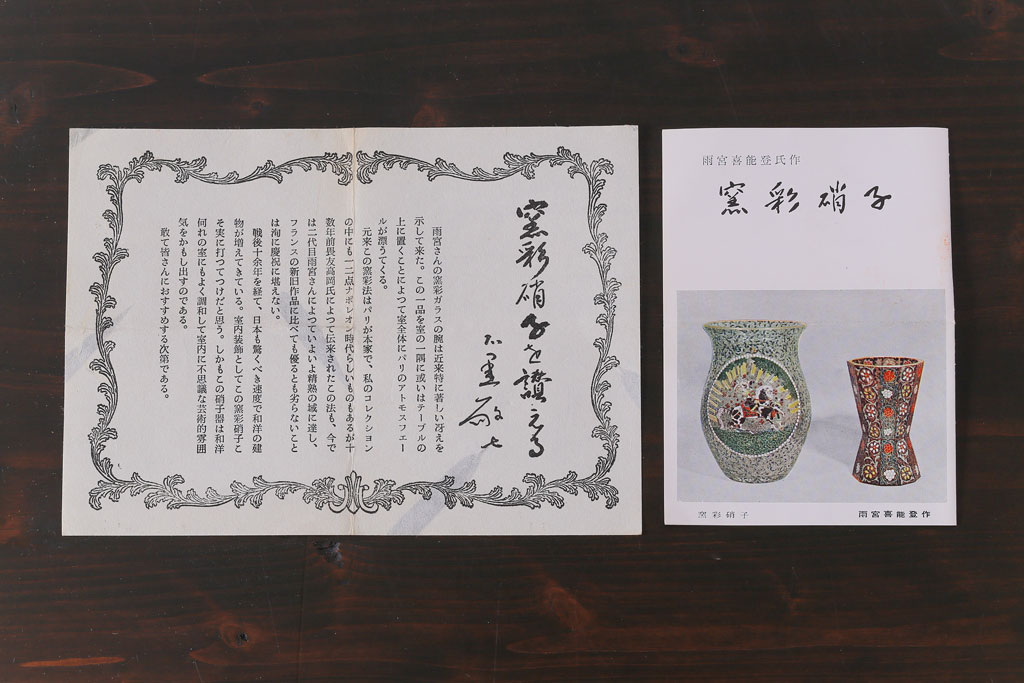 窯彩硝子を讃える
雨宮さんの窯彩ガラスの腕は近来特に著しい冴えを
示して来た。この一品を室の一隅に或いはテーブルの
上に置くことによつて室全体にパリのアトモスフエー
ルが漂うてくる。
元来この窯彩法はパリが本家で、私のコレクション
の中にも一二点ナポレオン時代らしいものもあるが十
数年前畏友高岡氏によつて伝来されたこの法も、今で
は二代目雨宮さんによつていよいよ精熟の域に達し、
フランスの新旧作品に比べても優るとも劣らないこと
は洵に慶祝に堪えない。
戦後十余年を経て、日本も驚くべき速度で和洋の建
物が増えてきている。室内装飾としてこの窯彩硝子こ
そ実に打つてつけだと思う。しかもこの硝子器は和洋
何れの室にもよく調和して室内に不思議な芸術的雰囲
気をかもし出すのである。
敢て皆さんにおすすめする次第である。
雨宮喜能登氏作
窯彩硝子
窯彩硝子
雨宮喜能登作